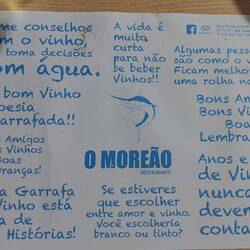 me conselhos
m o vinho,
toma decisões
om água.
bom Vinho
oesia
arrafada!!
Amigos
s Vinhos
Boas
ranças!
a Garrafa
Vinho está
a de
Histórias!
A vida é
muito
curta
para não
se beber
Vinhos!!
O MOREÃO
RESTAURANTE
Se estiveres
que escolher
entre amor e vinho.
Você escolheria
branco ou tinto?
Algumas pesso
são como o vi
Ficam melhor
uma rolha na
Bons Am
Bons V
Bo
Lembra
Anos e
de Vin
nunca
devem
conta